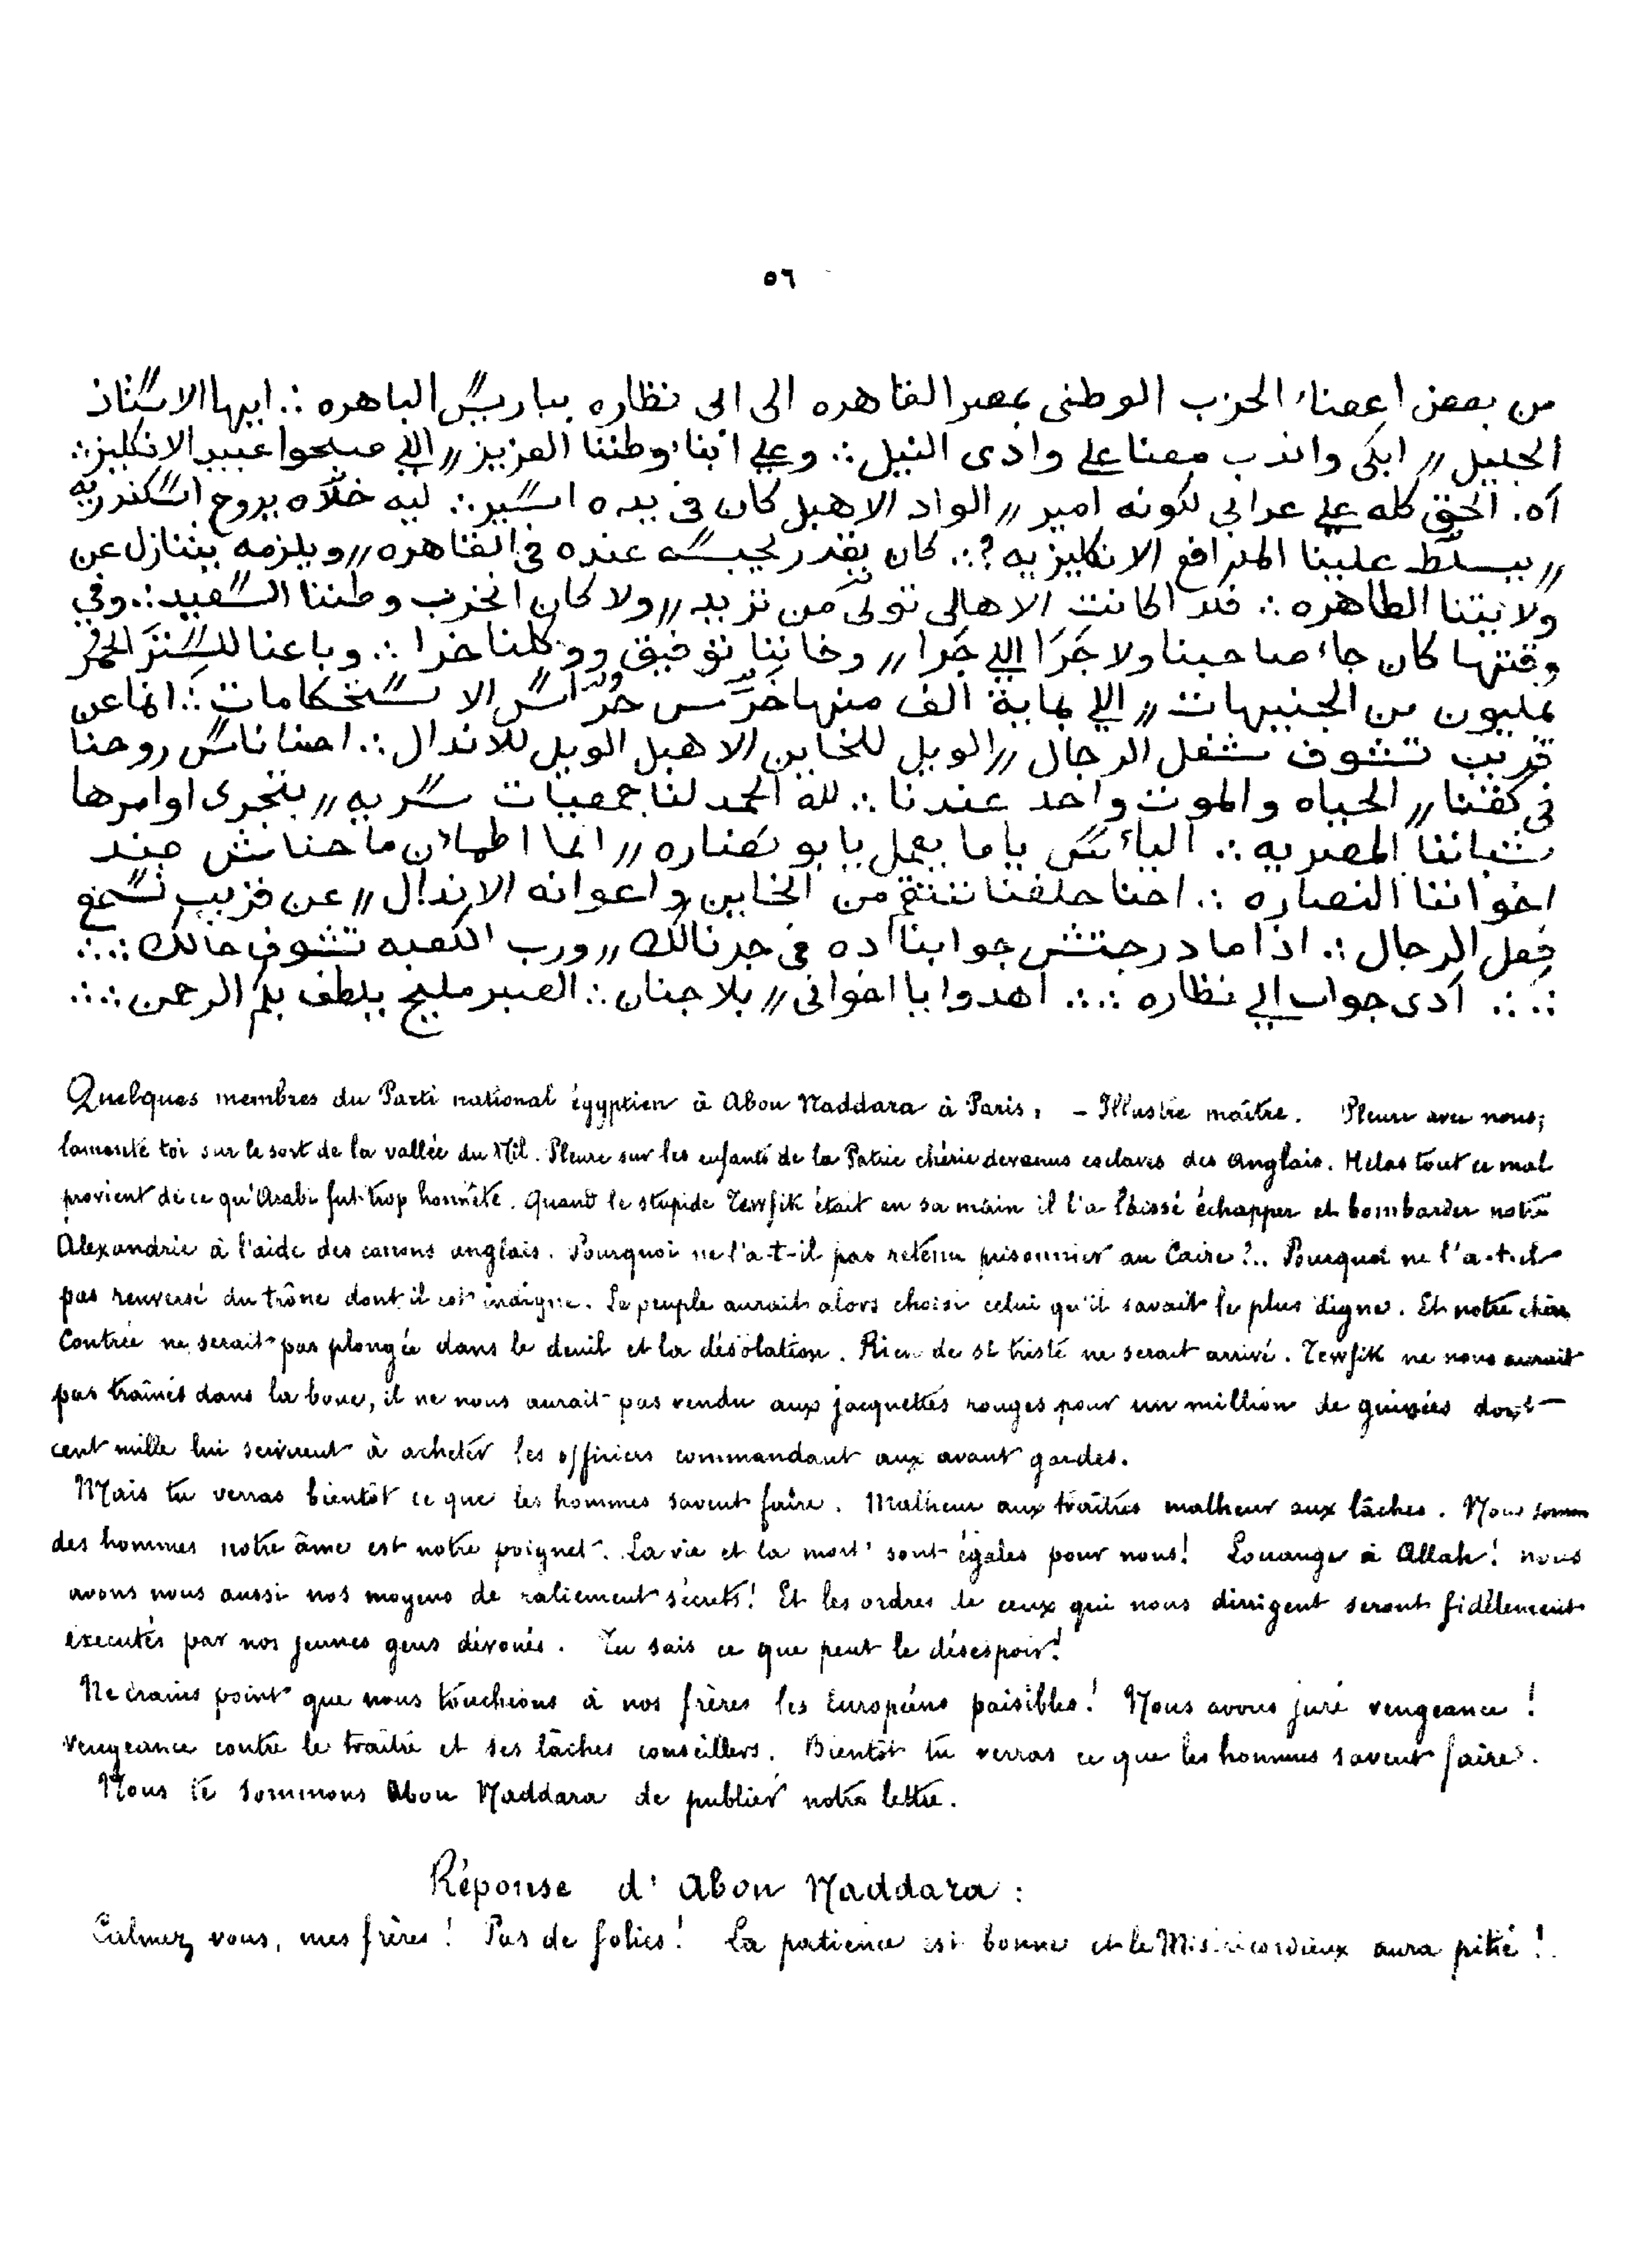 ٥٦
من بعض اعضاء الحزب الوطنى بمصر القاهره الى ابى نظاره بباريس الباهره ∴ ايها الاستاذ
الجليل // ابكى واندب معنا على وادى النيل ∴ وعلى ابناء وطننا العزيز // اللى صبحوا عبيد الانكليز ∴
آه. الحق كله على عرابى لكونه امير // الواد الاهبل كان فى يده اسير ∴ ليه خلّاه يروح اسكندريه
// يسلّط علينا المدافع الانكليزيه ? ∴ كان يقدر يحبسه عنده فى القاهره // ويلزمه يتنازل عن
ولايتنا الطاهره ∴ فلدا كانت الاهالى تولّى من تريد // ولا كان انخرب وطننا السعيد ∴ وفى
وقتها كان جاء صاحبنا ولا جَرَا اللى جَرا // وخاننا توفيق ووكلنا خرا ∴ وباعنا للسترَ الحمر
بمليون من الجنيهات // اللى بماية الف منها خَرَّس حُرّاس الاستحكامات ∴ انما عن
قريب تشوف شغل الرجال // الويل للخاين الاهبل الويل للاندال ∴ احنا ناس روحنا
فى كفنا // الحياه والموت واحد عندنا ∴ لله الحمد لنا جمعيات سريه // بتجرى اوامرها
شباننا المصريه ∴ اليائس ياما يعمل يا بو نضاره // انما اطمئن ماحناش ضد
اخواننا النصاره ∴ احنا حلفنا ننتقم من الخاين واعوانه الاندال // عن قريب تسمع
فعل الرجال ∴ اذا ما درجتش جوابنا ده فى جرنالك // ورب الكعبه تشوف حالك ∴∴
∴∴ آدى جواب ابى نظاره ∴∴ اهدوا يا اخوانى // بلا جنان ∴ الصبر مليح يلطف بكم الرحمن ∴∴
Quelques membres du Parti national égyptien à Abou Naddara à Paris. – Illustre maître. Pleure avec nous;
lamente toi sur le sort de la vallée du Nil. Pleure sur les enfants de la Patrie chérie devenus esclaves des Anglais. Helas tout ce mal
provient de ce qu'Arabi fut trop honnête. Quand le stupide Tewfik était en sa main il l'a laissé échapper et bombarder notre
Alexandrie à l'aide des canons anglais. Pourquoi ne l'a-t-il pas retenu prisonnier au Caire?.. Pourquoi ne l'a-t-il
pas renversé du trône dont il est indigne. Le peuple aurait alors choisi celui qu'il savait le plus digne. Et notre chère
Contrée ne serait pas plongée dans le deuil et la désolation. Rien de si triste ne serait arrivé. Tewfik ne nous aurait
pas traînés dans la boue, il ne nous aurait pas vendu aux jacquettes rouges pour un million de guinées dont
cent mille lui servirent à acheter les officiers commandant aux avant gardes.
Mais tu verras bientôt ce que les hommes savent faire. Malheur aux traîtres malheur aux lâches. Nous sommes
des hommes notre âme est notre poignet. La vie et la mort sont égales pour nous! Louange à Allah! nous
avons nous aussi nos moyens de raliement secrets! Et les ordres de ceux qui nous dirigent seront fidèlement
executés par nos jeunes gens dévoués. Tu sais ce que peut le désespoir!
Ne crains point que nous touchions à nos frères les Européens paisibles! Nous avons juré vengeance!
Vengeance contre le traître et ses lâches conseillers. Bientôt tu verras ce que les hommes savent faire.
Nous te sommons Abou Naddara de publier notre lettre.
Réponse d'Abou Naddara:
Calmez vous, mes frères! Pas de folies! La patience est bonne et le Miséricordieux aura pitié!